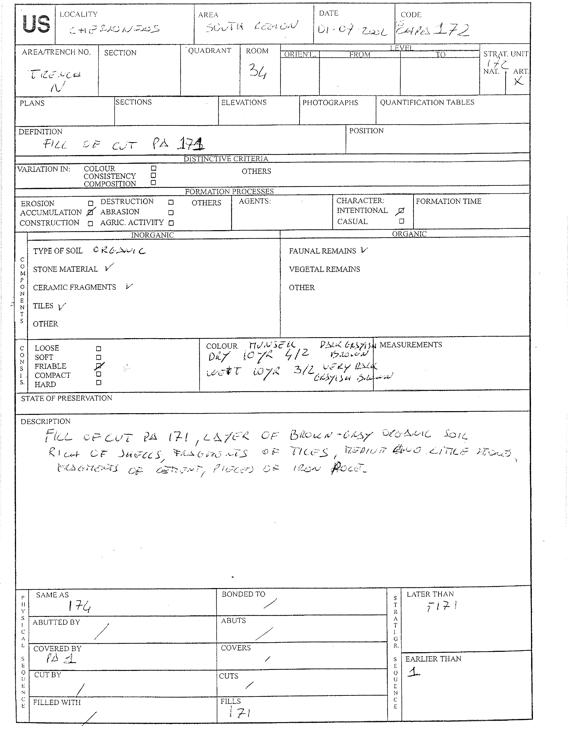 US
LOCALITY
CHERSONESOS
AREA
SOUTH REGION
DATE
01-07-2002
CODE
172
AREA/TRENCH NO.
TRENCH
IV
SECTION
QUADRANT
ROOM
34
LEVEL
ORIENT. FROM TO
STRAT. UNIT
172
NAT. ART.
X
PLANS
SECTIONS
ELEVATIONS
PHOTOGRAPHS
QUANTIFICATION TABLES
DEFINITION
FILL OF CUT PA 171
POSITION
DISTINCTIVE CRITERIA
VARIATION IN: COLOUR
CONSISTENCY
COMPOSITION
OTHERS
FORMATION PROCESSES
EROSION DESTRUCTION
ACCUMULATION ABRASION
CONSTRUCTION AGRIC. ACTIVITY
OTHERS
AGENTS:
CHARACTER:
INTENTIONAL
CASUAL
FORMATION TIME
COMPONENTS
INORGANIC
TYPE OF SOIL ORGANIC
STONE MATERIAL
CERAMIC FRAGMENTS
TILES
OTHER
ORGANIC
FAUNAL REMAINS
VEGETAL REMAINS
OTHER
CONSIS.
LOOSE
SOFT
FRIABLE
COMPACT
HARD
COLOUR MUNSELL DARK GRAYISH
DRY 10YR 4/2 BROWN
WET 10YR 3/2 VERY DARK
GRAYISH BROWN
MEASUREMENTS
STATE OF PRESERVATION
DESCRIPTION
FILL OF CUT PA 171, LAYER OF BROWN-GRAY ORGANIC SOIL
RICH OF SHELLS, FRAGMENTS OF TILES, MEDIUM AND LITTLE STONES,
FRAGMENTS OF CEMENT, PIECES OF IRON
PHYSICAL SEQUENCE
SAME AS
174
BONDED TO
/
ABUTTED BY
/
ABUTS
/
COVERED BY
PA 1
COVERS
/
CUT BY
/
CUTS
/
FILLED WITH
/
FILLS
171
STRATIGR. SEQUENCE
LATER THAN
171
EARLIER THAN
1